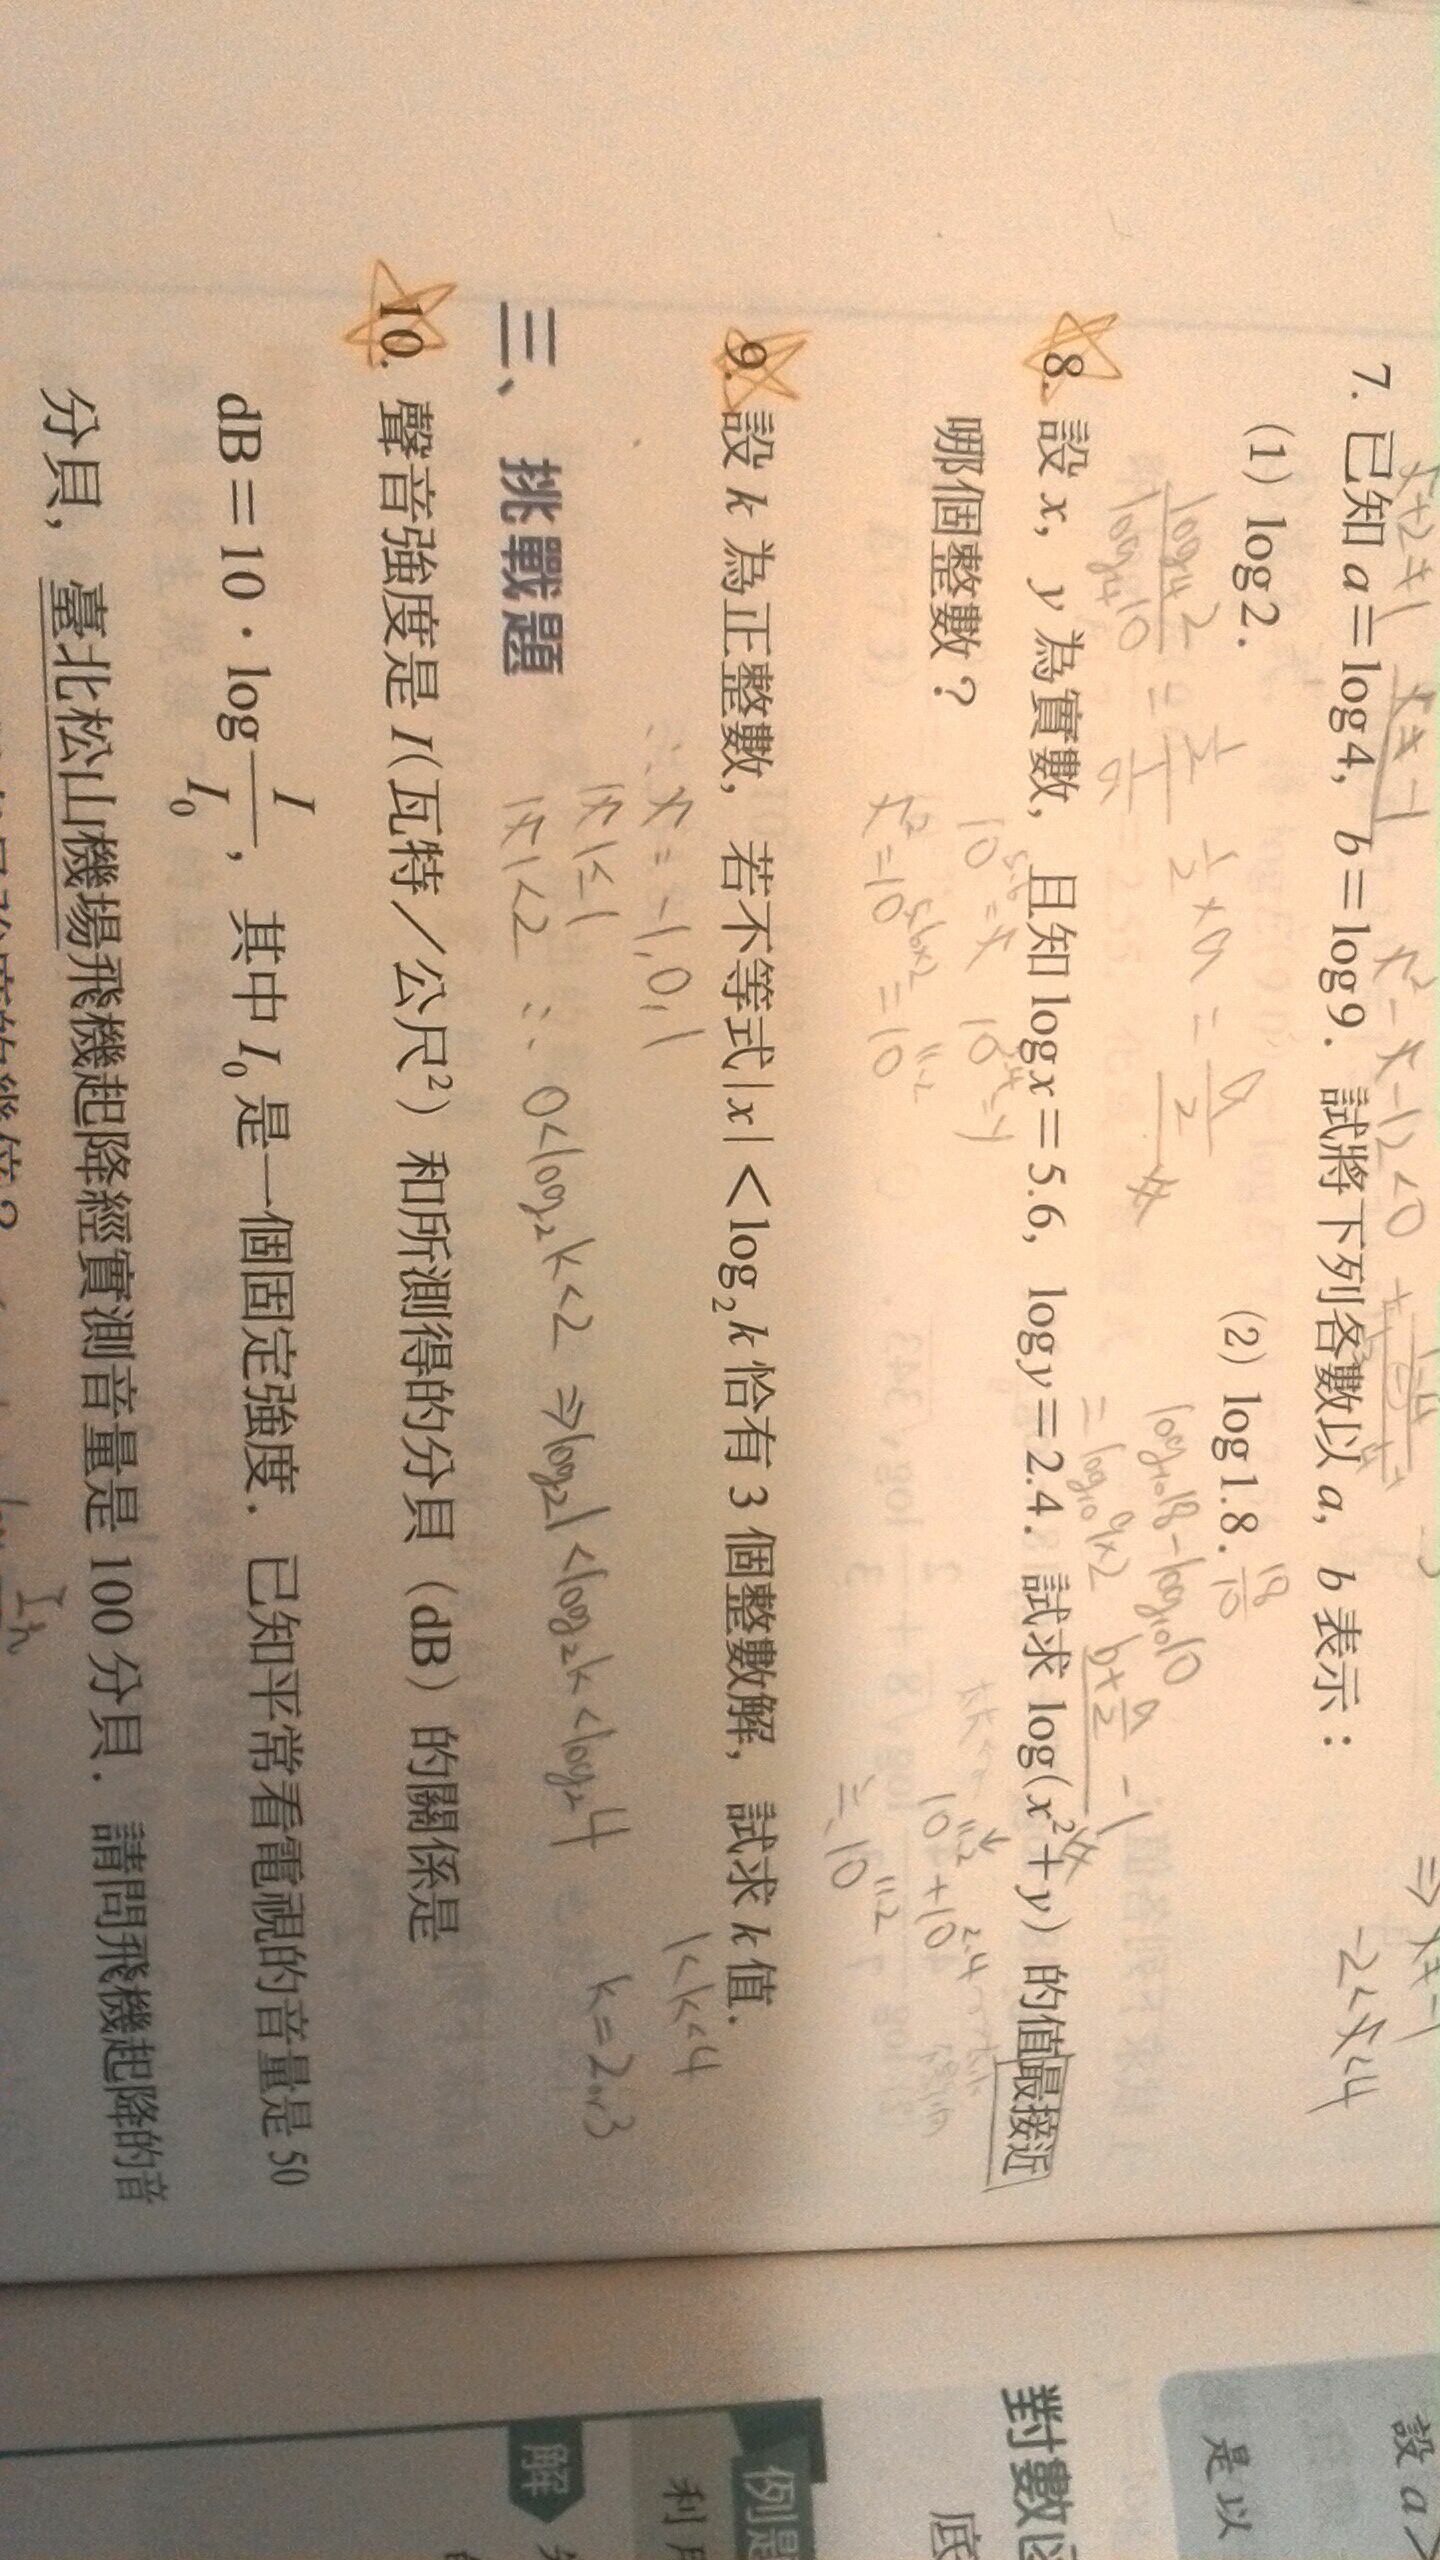 x≠-1
x²-x-12<0
-2<x<4
7. 已知 a=log4, b=log9. 試將下列各數以 a, b 表示：
(1) log2. (2) log1.8. 18/10
log₄2/log₄10 = ½/(1/a) ½×a = a/2
log₁₀18-log₁₀10
=log₁₀9×2 b+a/2-1
8. 設 x, y 為實數, 且知 logx=5.6, logy=2.4. 試求 log(x²+y) 的值最接近
哪個整數？
10^5.6=x 10^2.4=y
10^11.2+10^2.4
x²=10^5.6×2=10^11.2
≒10^11.2
9. 設 k 為正整數, 若不等式|x|<log₂k 恰有 3 個整數解, 試求 k 值.
∴x=-1,0,1
1<k<4
|x|≤1
k=2or3
|x|<2 ∴ 0<log₂k<2 ⇒log₂1<log₂k<log₂4
三、挑戰題
10. 聲音強度是 I(瓦特／公尺²) 和所測得的分貝 (dB) 的關係是
dB=10·log I/I₀, 其中 I₀ 是一個固定強度. 已知平常看電視的音量是 50
分貝, 臺北松山機場飛機起降經實測音量是 100 分貝. 請問飛機起降的音
對數函
底
例題
利用
解
設 a>
是以